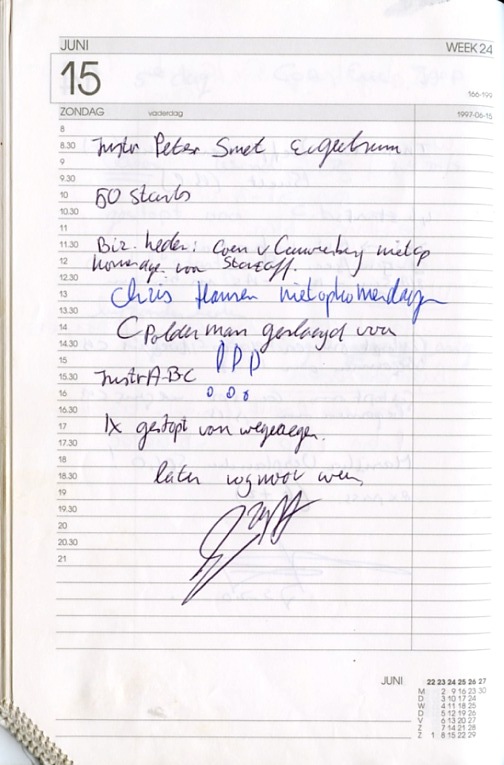 JUNI WEEK 24
15
166-199
ZONDAG vaderdag 1997-06-15
8
8.30 Instr Peter Smet
9
9.30
10 50 starts
10.30
11
11.30 Biz. heden: Coen v Cauwenberg niet op
12
12.30
13 Chris Hansen niet op komen dagen
13.30
14 C Polderman geslaagd voor
14.30
15 PPP
15.30 Instr A-BC
16
16.30
17 1x gestopt van wege regen.
17.30
18
18.30 later nog weer
19
19.30
20
20.30
21
JUNI 22 23 24 25 26 27
M 2 9 16 23 30
D 3 10 17 24
W 4 11 18 25
D 5 12 19 26
V 6 13 20 27
Z 7 14 21 28
Z 1 8 15 22 29